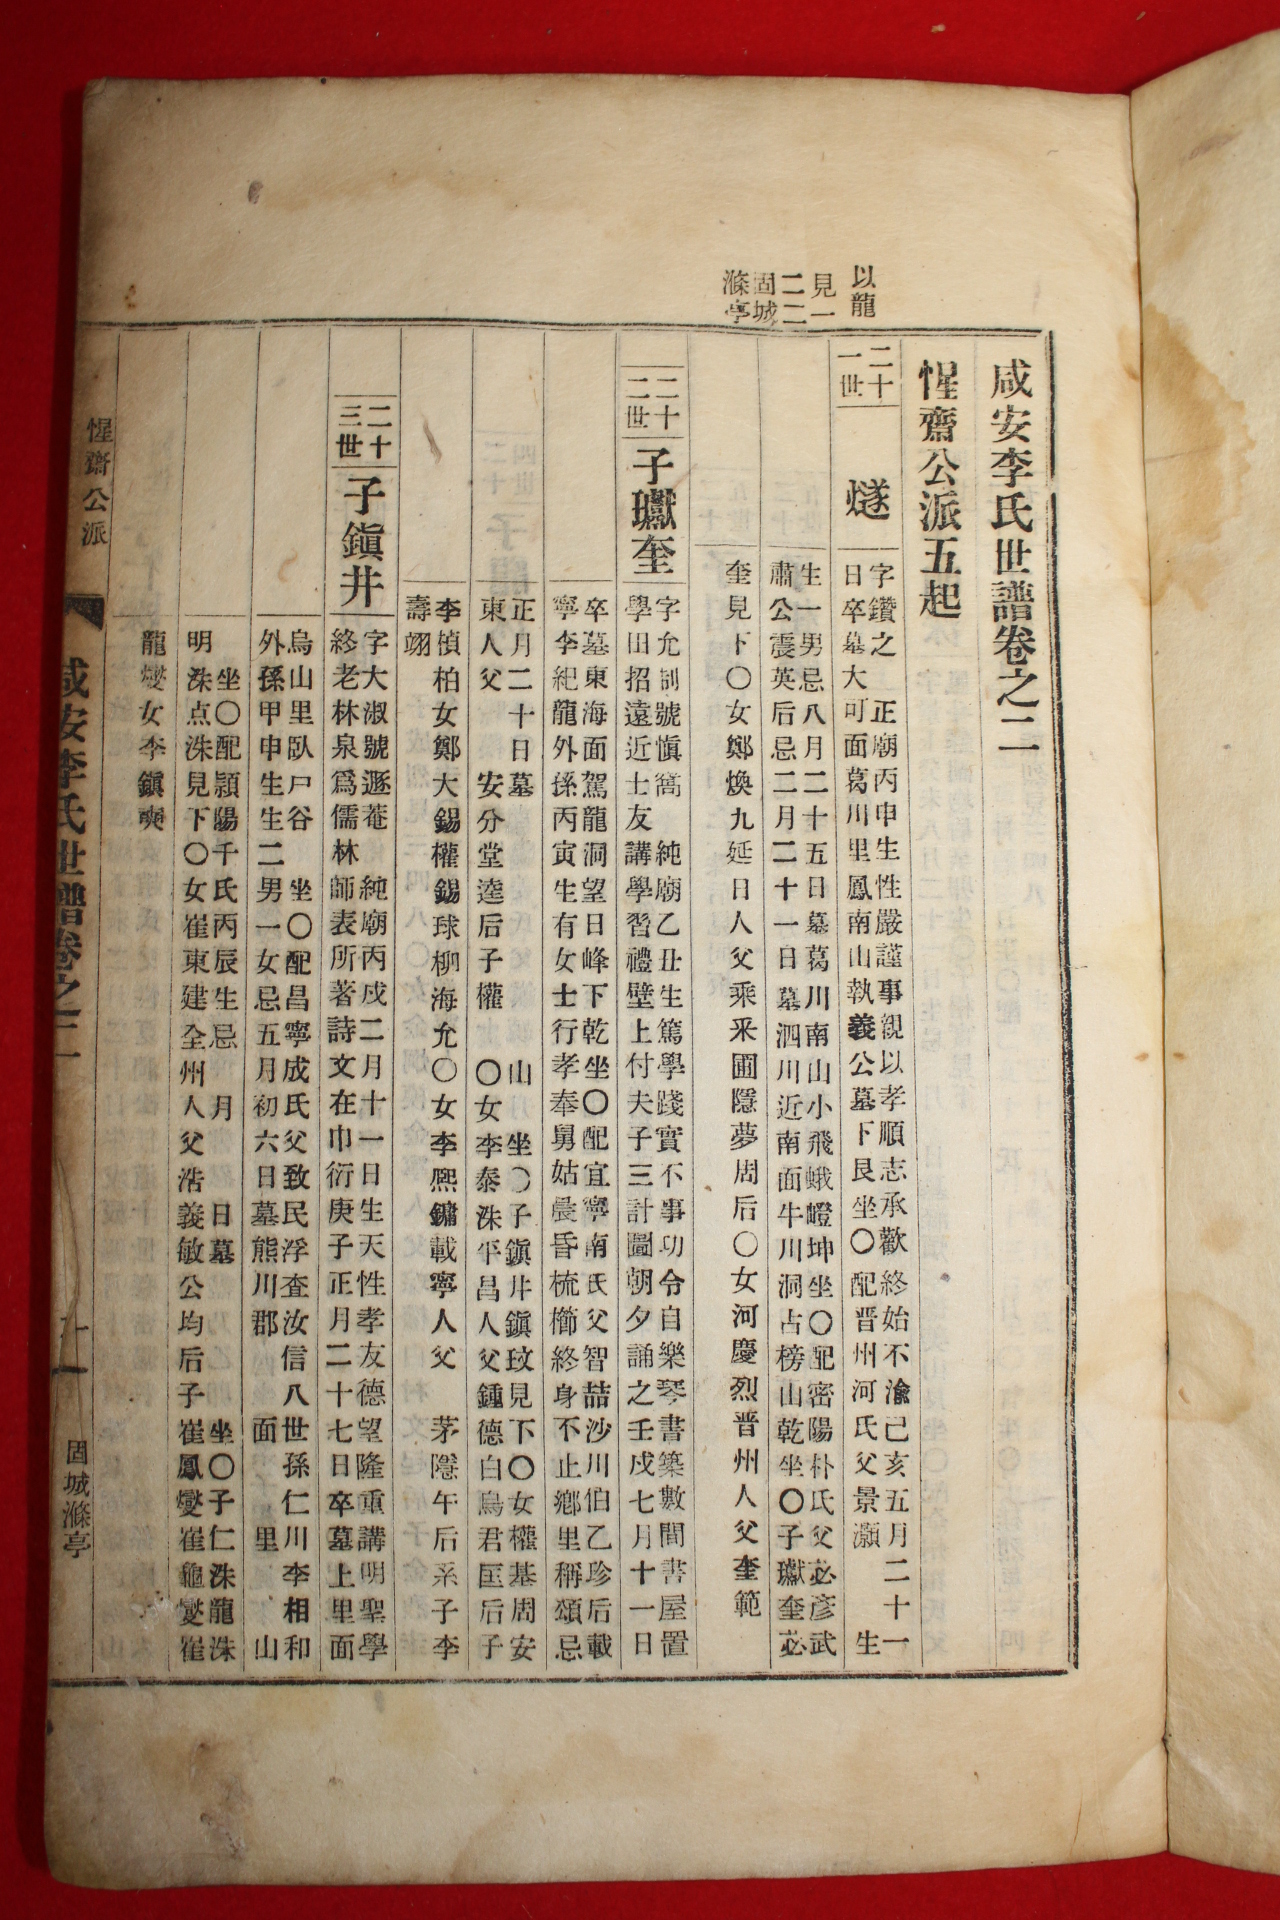 以龍
見一
二二
固城
滌亭
咸安李氏世譜卷之二
惺齋公派五起
二十
一世
燧
字鑽之 正廟丙申生性嚴謹事親以孝順志承歡終始不渝己亥五月二十一
日卒墓大可面葛川里鳳南山執義公墓下艮坐〇配晋州河氏父景灝 生
生一男忌八月二十五日墓葛川南山小飛蛾嶝坤坐〇配密陽朴氏父必彦武
肅公震英后忌二月二十一日墓泗川近南面牛川洞占榜山乾坐〇子瓛奎必
奎見下〇女鄭煥九延日人父乘釆圃隱夢周后〇女河慶烈晋州人父奎範
二十
二世
子瓛奎
字允訓號愼窩 純廟乙丑生篤學踐實不事功令自樂琴書築數間書屋置
學田招遠近士友講學習禮壁上付夫子三計圖朝夕誦之壬戌七月十一日
卒墓東海面駕龍洞望日峰下乾坐〇配宜寧南氏父智喆沙川伯乙珍后載
寧李紀龍外孫丙寅生有女士行孝奉舅姑晨昏梳櫛終身不止鄕里稱頌忌
正月二十日墓 山 坐〇子鎭井鎭玟見下〇女權基周安
東人父 安分堂逵后子權 〇女李泰洙平昌人父鍾德白烏君匡后子
李楨柏女鄭大錫權錫球柳海允〇女李熙鏞載寧人父 茅隱午后系子李
壽翊
二十
三世
子鎭井
字大淑號遯菴 純廟丙戌二月十一日生天性孝友德望隆重講明聖學
終老林泉爲儒林師表所著詩文在巾衍庚子正月二十七日卒墓上里面
烏山里臥尸谷 坐〇配昌寧成氏父致民浮査汝信八世孫仁川李相和
外孫甲申生生二男一女忌五月初六日墓熊川郡 面 里 山
坐〇配潁陽千氏丙辰生忌 月 日墓 坐〇子仁洙龍洙
明洙点洙見下〇女崔東建全州人父浩義敏公均后子崔鳳燮崔龜燮崔
龍燮女李鎭奭
惺齋公派
咸安李氏世譜卷之二
一
固城滌亭